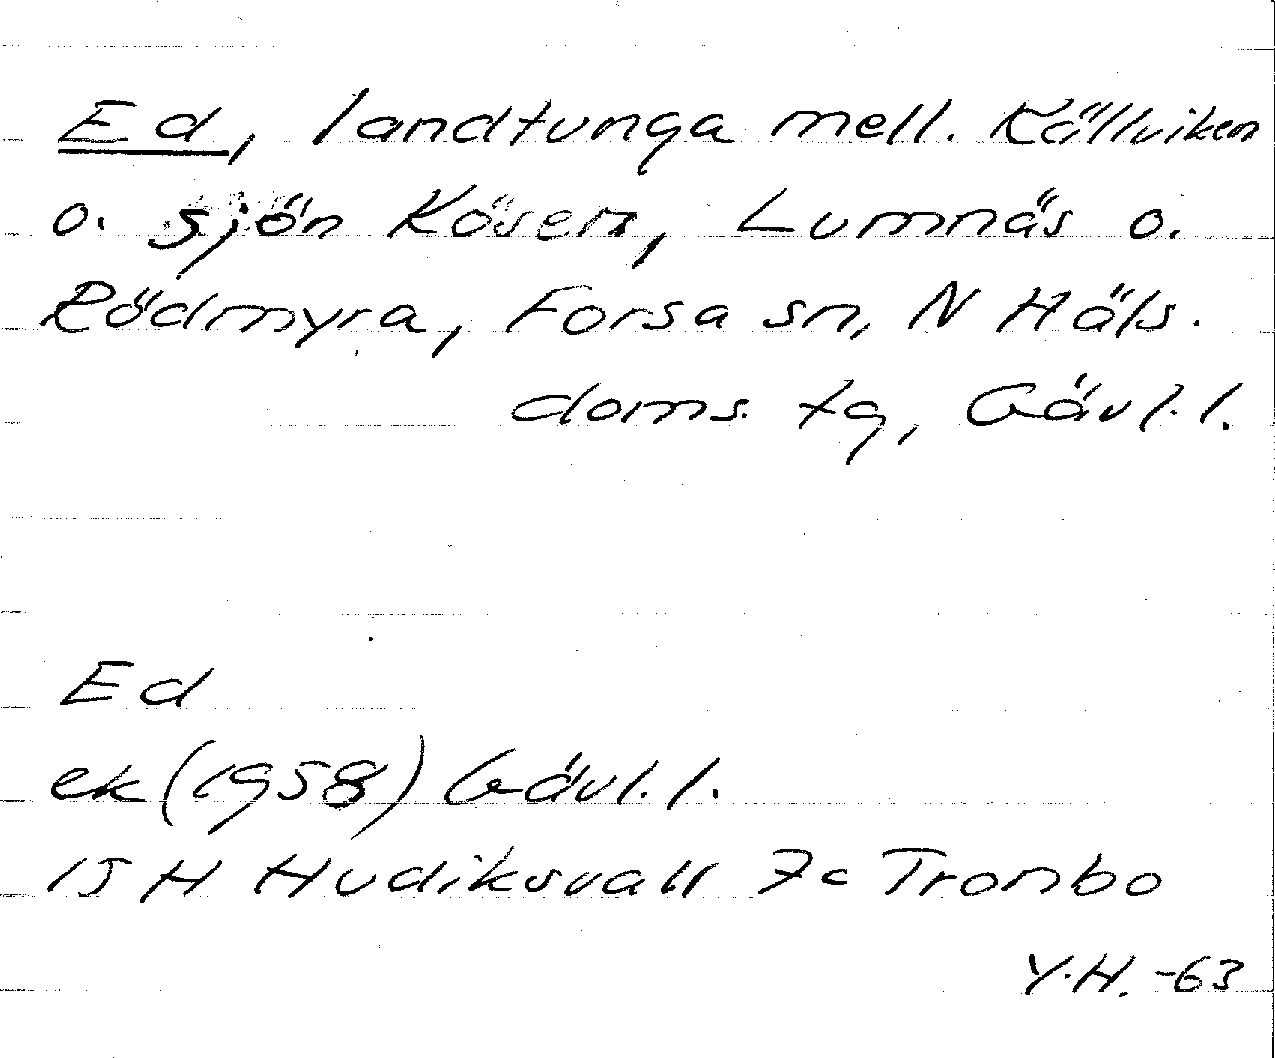 Ed, landtunga mell. Källviken
o. sjön Kösen, Lumnäs o.
Rödmyra, Forsa sn, N Häls.
doms. tg, Gävl. l.
Ed
ek (1958) Gävl. l.
15 H Hudiksvall 7c Trombo
Y.H. -63